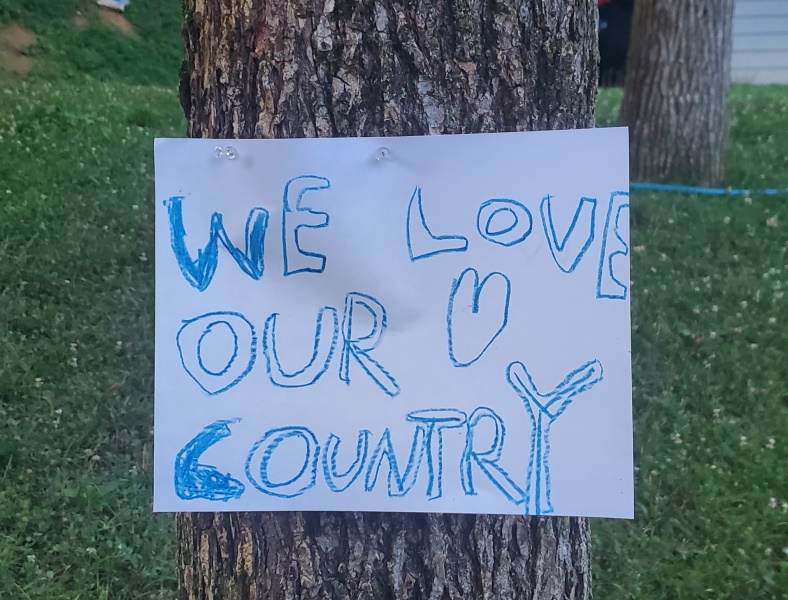 WE LOVE
OUR
COUNTRY